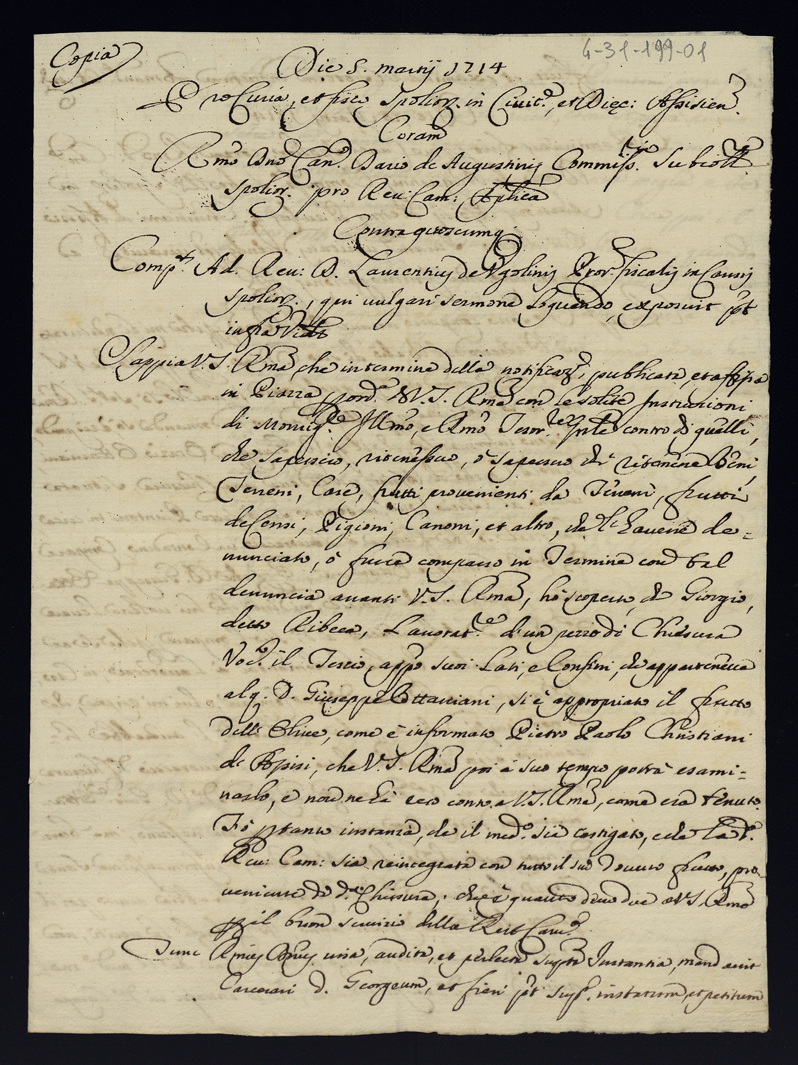 Copia
4-31-199-01
Die 8. martij 1714
Pro Curia, et fisco Spolior. in Civit.e, et Dięc: Assisien.
Coram
Rmo Dno Can.o Dario de Augustinis Commiss.
Spolior. pro Reu: Cam: Aplica
Contra quoscumq
Comp.t Ad. Reu: D. Laurentius de Vgolinis Pror. fiscalis in Causis
Spolior., qui vulgari sermone loquendo, exposuit pt
infra Vzt
Sappia V.S. Rma, che in termine della notificaz.e, publicata, et affissa
in Piazza p ord.e di V.S. Rma con le solite Instruzioni
di Monsig.re Illmo, e Rmo Tesor.re contro di quelli,
che sapessero, ritenessero, ò sapessero chi ritenesse beni
Terreni, Case, frutti provenienti da Terreni, frutti
de Censi, Pigioni, Canoni, et altro, che l'havesse de-
nunciato, ò fusse comparso in Termine con tal
denuncia avanti V.S. Rma, hò scoperto, che Giorgio,
detto Ribeca, Lavorat.re d'un pezzo di Chiusura
Voc.o il Terzo, app.o suoi Lati, e Confini, che apparteneva
al q. D. Giuseppe Ottaviani, si è appropriato il frutto
dell'Olive, come è informato Pietro Paolo Christiani
di Assisi, che V.S. Rma poi à suo tempo potrà esami-
narlo, e non ne hà reso conto à V.S. Rma, come era tenuto.
Fò ptanto instanza, che il med.o sia castigato, e che la d.a
Reu: Cam: sia reintegrata con tutto il suo dovuto frutto, pro-
veniente da d.a Chiusura, che è quanto devo dire à V.S. Rma
p il buon servizio della Reu: Cam.a
Tunc Rmus Dnus visa, audita, et perlecta supta Instantia, mandavit
Carcerari d. Georgium, et fieri pt sup.a instatum, et petitum